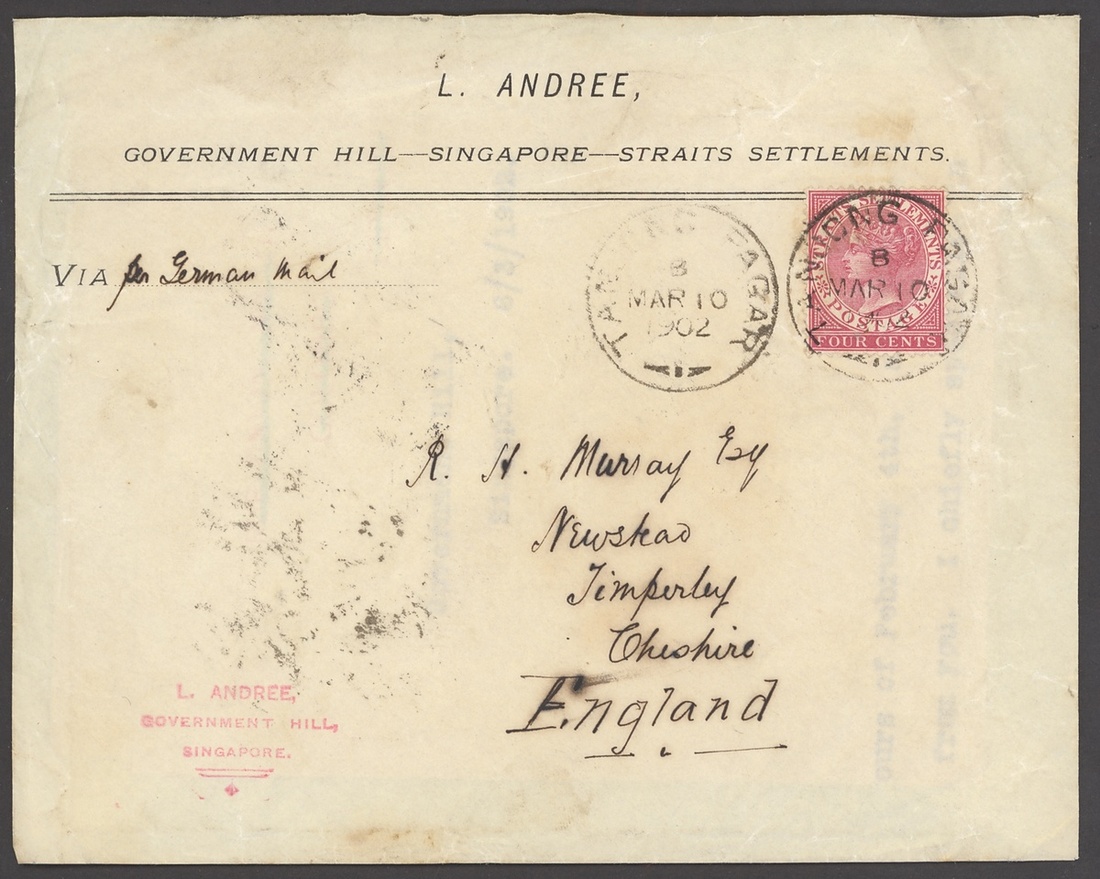 L. ANDREE,
GOVERNMENT HILL—SINGAPORE—STRAITS SETTLEMENTS.
VIA per German Mail
TANJONG PAGAR
B
MAR 10
1902
TANJONG PAGAR
B
MAR 10
STRAITS SETTLEMENTS
POSTAGE
FOUR CENTS
R. H. Murray Esq
Newstead
Timperley
Cheshire
England
L. ANDREE,
GOVERNMENT HILL,
SINGAPORE.